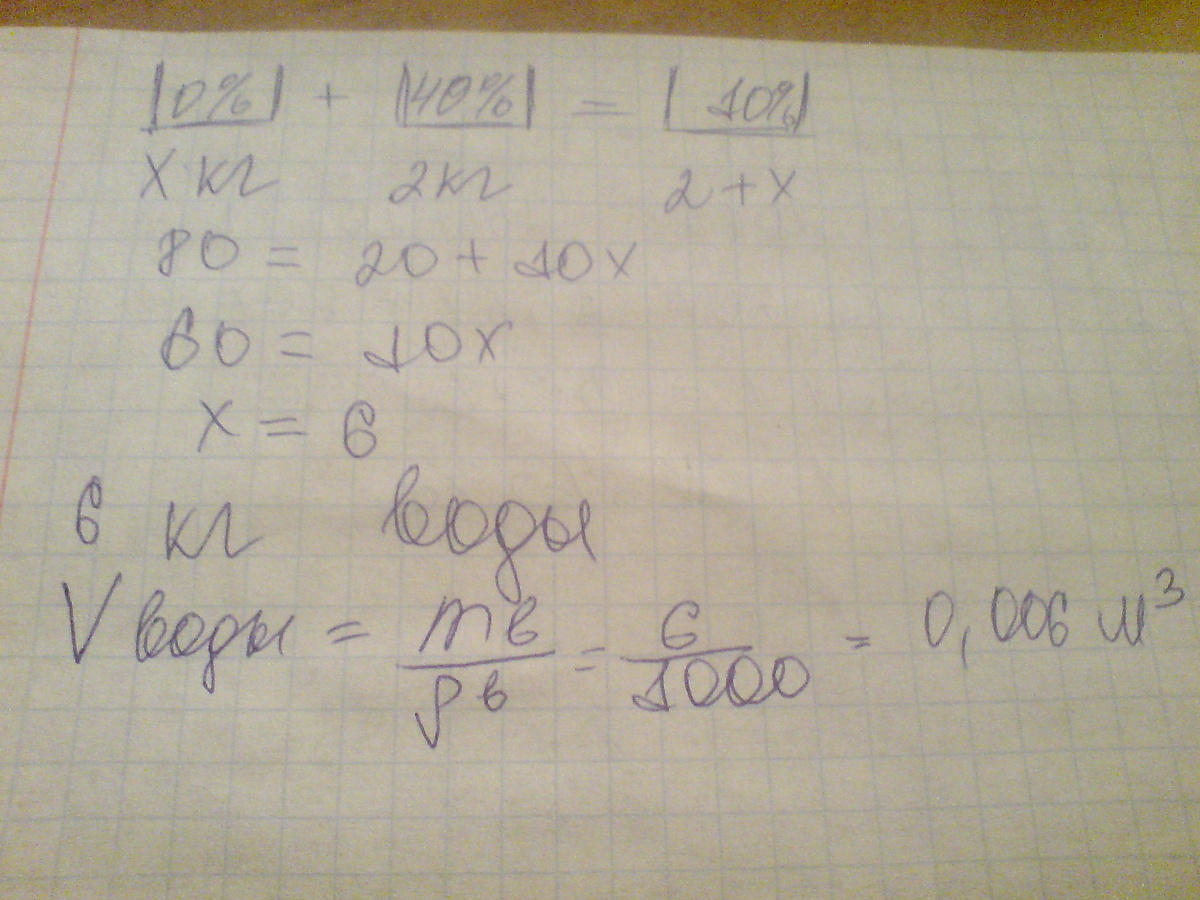 |0%| + |40%| = |10%|
x кг 2кг 2+x
80 = 20 + 10x
60 = 10x
x = 6
6 кг воды
V воды = mв/ρв = 6/1000 = 0,006 м³